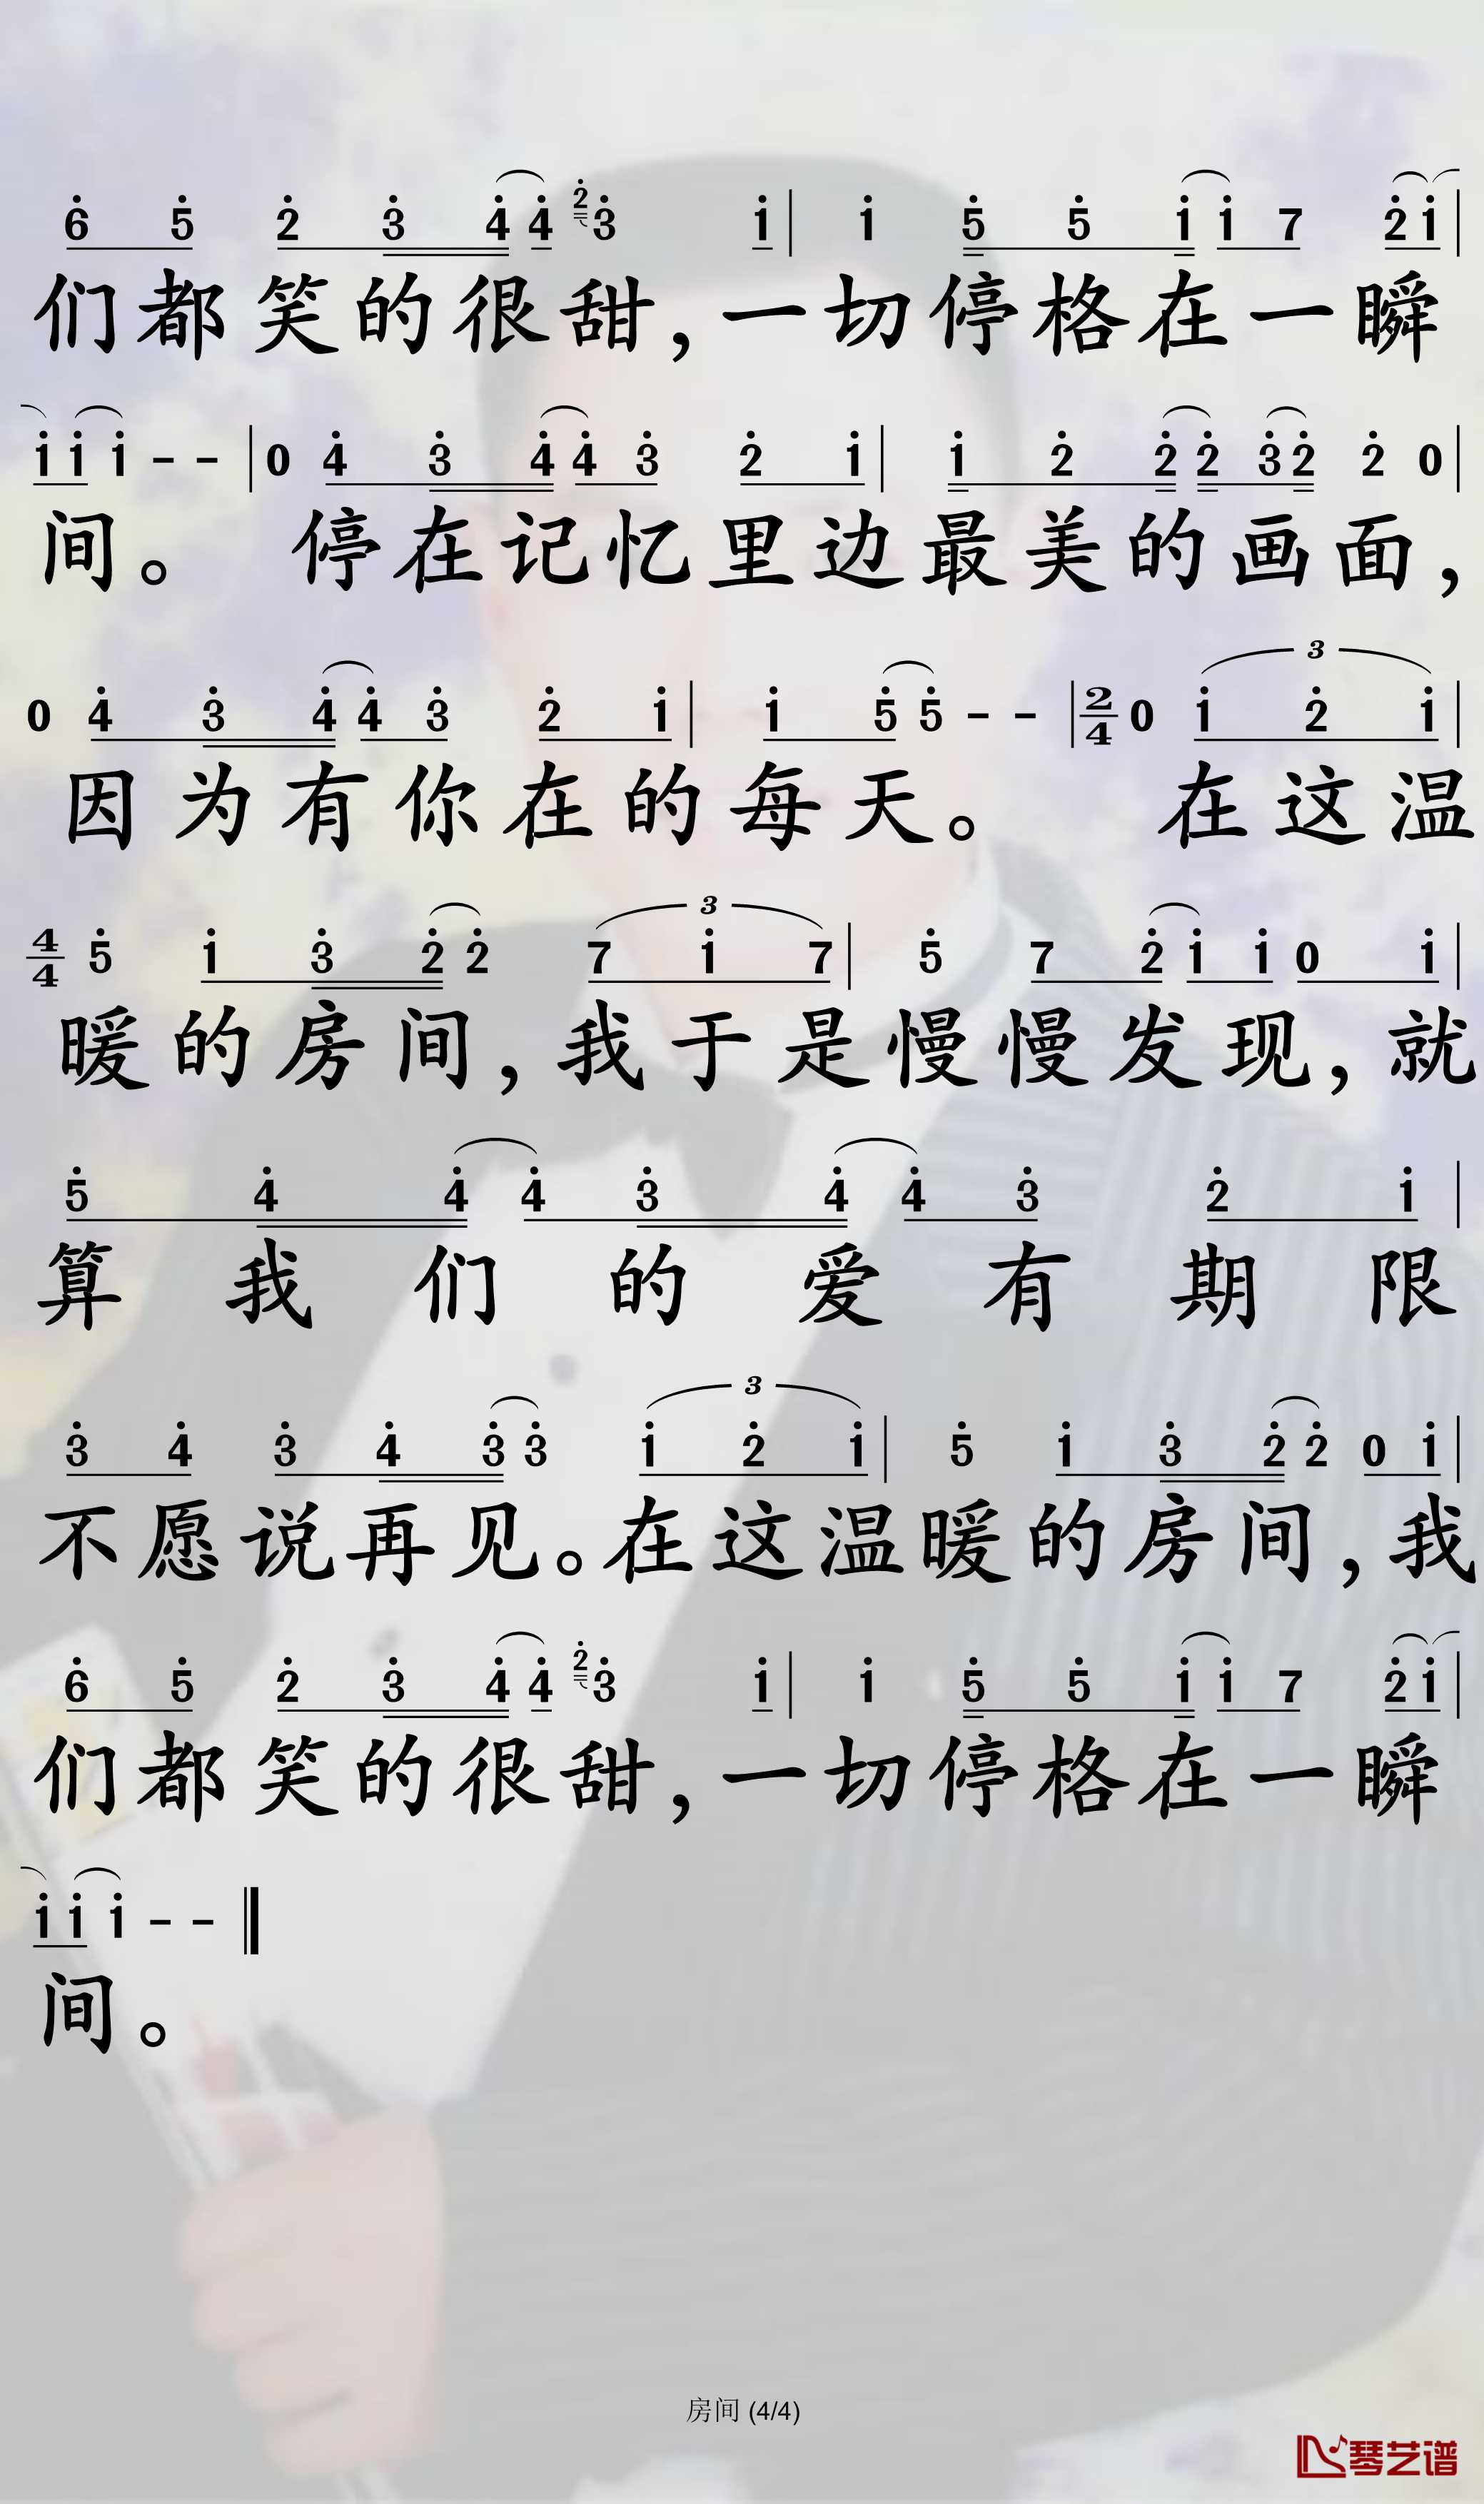 6 5 2 3 4 4 2 3 1 | 1 5 5 1 1 7 2 1 |
们都笑的很甜，一切停格在一瞬
1 1 1 - - | 0 4 3 4 4 3 2 1 | 1 2 2 2 3 2 2 0 |
间。 停在记忆里边最美的画面，
3
0 4 3 4 4 3 2 1 | 1 5 5 - - | 2/4 0 1 2 1 |
因为有你在的每天。 在这温
3
4/4 5 1 3 2 2 7 1 7 | 5 7 2 1 1 0 1 |
暖的房间，我于是慢慢发现，就
5 4 4 4 3 4 4 3 2 1 |
算我们的爱有期限
3
3 4 3 4 3 3 1 2 1 | 5 1 3 2 2 0 1 |
不愿说再见。在这温暖的房间，我
6 5 2 3 4 4 2 3 1 | 1 5 5 1 1 7 2 1 |
们都笑的很甜，一切停格在一瞬
1 1 1 - - ‖
间。
房间 (4/4)
琴艺谱